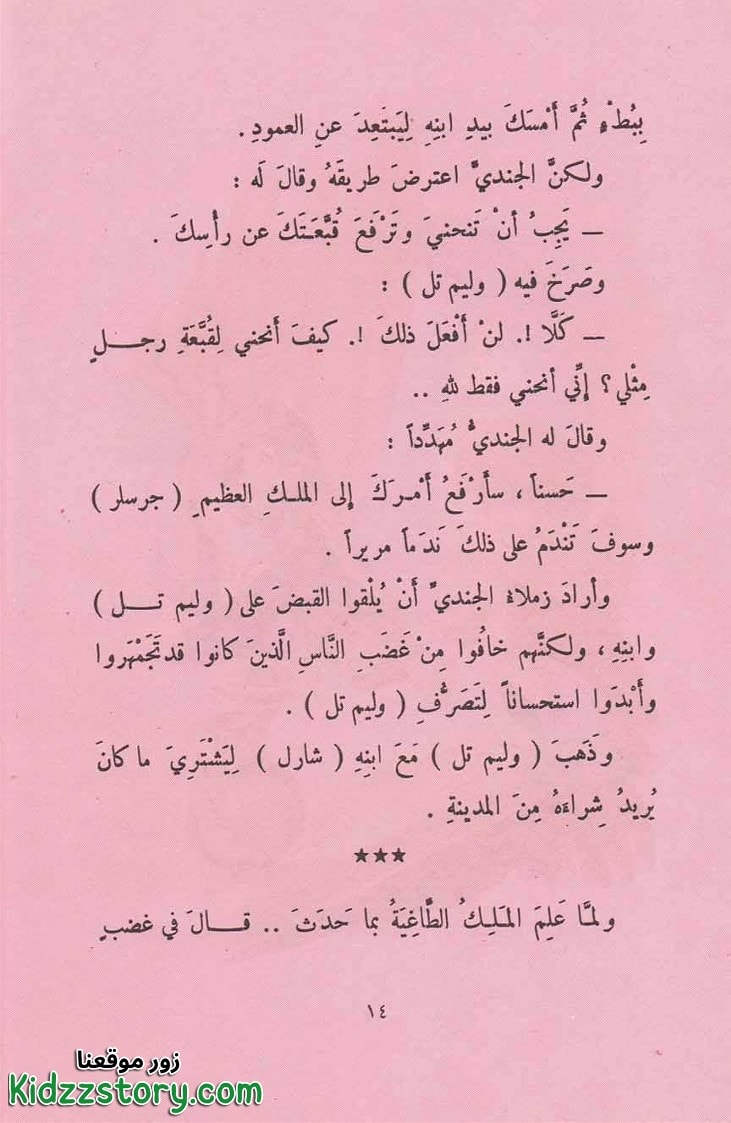 بِبُطْءٍ ثُمَّ أَمْسَكَ بيدِ ابنِهِ لِيَبتَعِدَ عنِ العمودِ .
ولكنَّ الجنديَّ اعترضَ طريقَهُ وقالَ لَه :
ــ يَجِبُ أنْ تَنحنيَ وتَرْفَعَ قُبَّعَتَكَ عن رأسِكَ .
وصَرَخَ فيه ( وليم تل ) :
ــ كَلَّا !. لنْ أَفْعَلَ ذلكَ !. كيفَ أَنحني لِقُبَّعَةِ رجــلٍ
مِثْلي ؟ إنِّي أنحني فقط للهِ ..
وقالَ له الجنديُّ مُهَدِّداً :
ــ حَسناً ، سأَرْفَعُ أَمْـرَكَ إلى الملـكِ العظيمِ ( جرسلر )
وسوفَ تَنْدَمُ على ذلكَ نَدَماً مريراً .
وأرادَ زملاءُ الجنديِّ أَنْ يُلْقوا القبضَ على ( وليم تــل )
وابنِهِ ، ولكنَّهم خافُوا مِنْ غَضَبِ النَّاسِ الَّذينَ كانوا قد تَجَمْهَروا
وأَبْدَوا استحساناً لِتَصَرُّفِ ( وليم تل ) .
وذَهَبَ ( وليم تل ) مَعَ ابنِهِ ( شارل ) لِيَشْتَرِيَ ما كانَ
يُريدُ شِراءَهُ مِنَ المدينةِ .
★★★
ولمَّا عَلِمَ المَـلِـكُ الطَّاغِيَةُ بما حَدَثَ .. قــالَ في غضبٍ
١٤
زور موقعنا
Kidzzstory.com